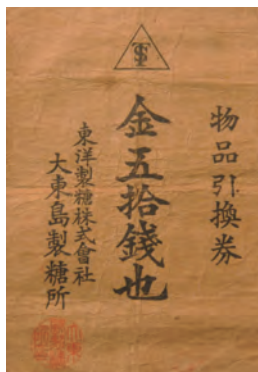 物品引換券
金五拾錢也
東洋製糖株式會社
大東島製糖所